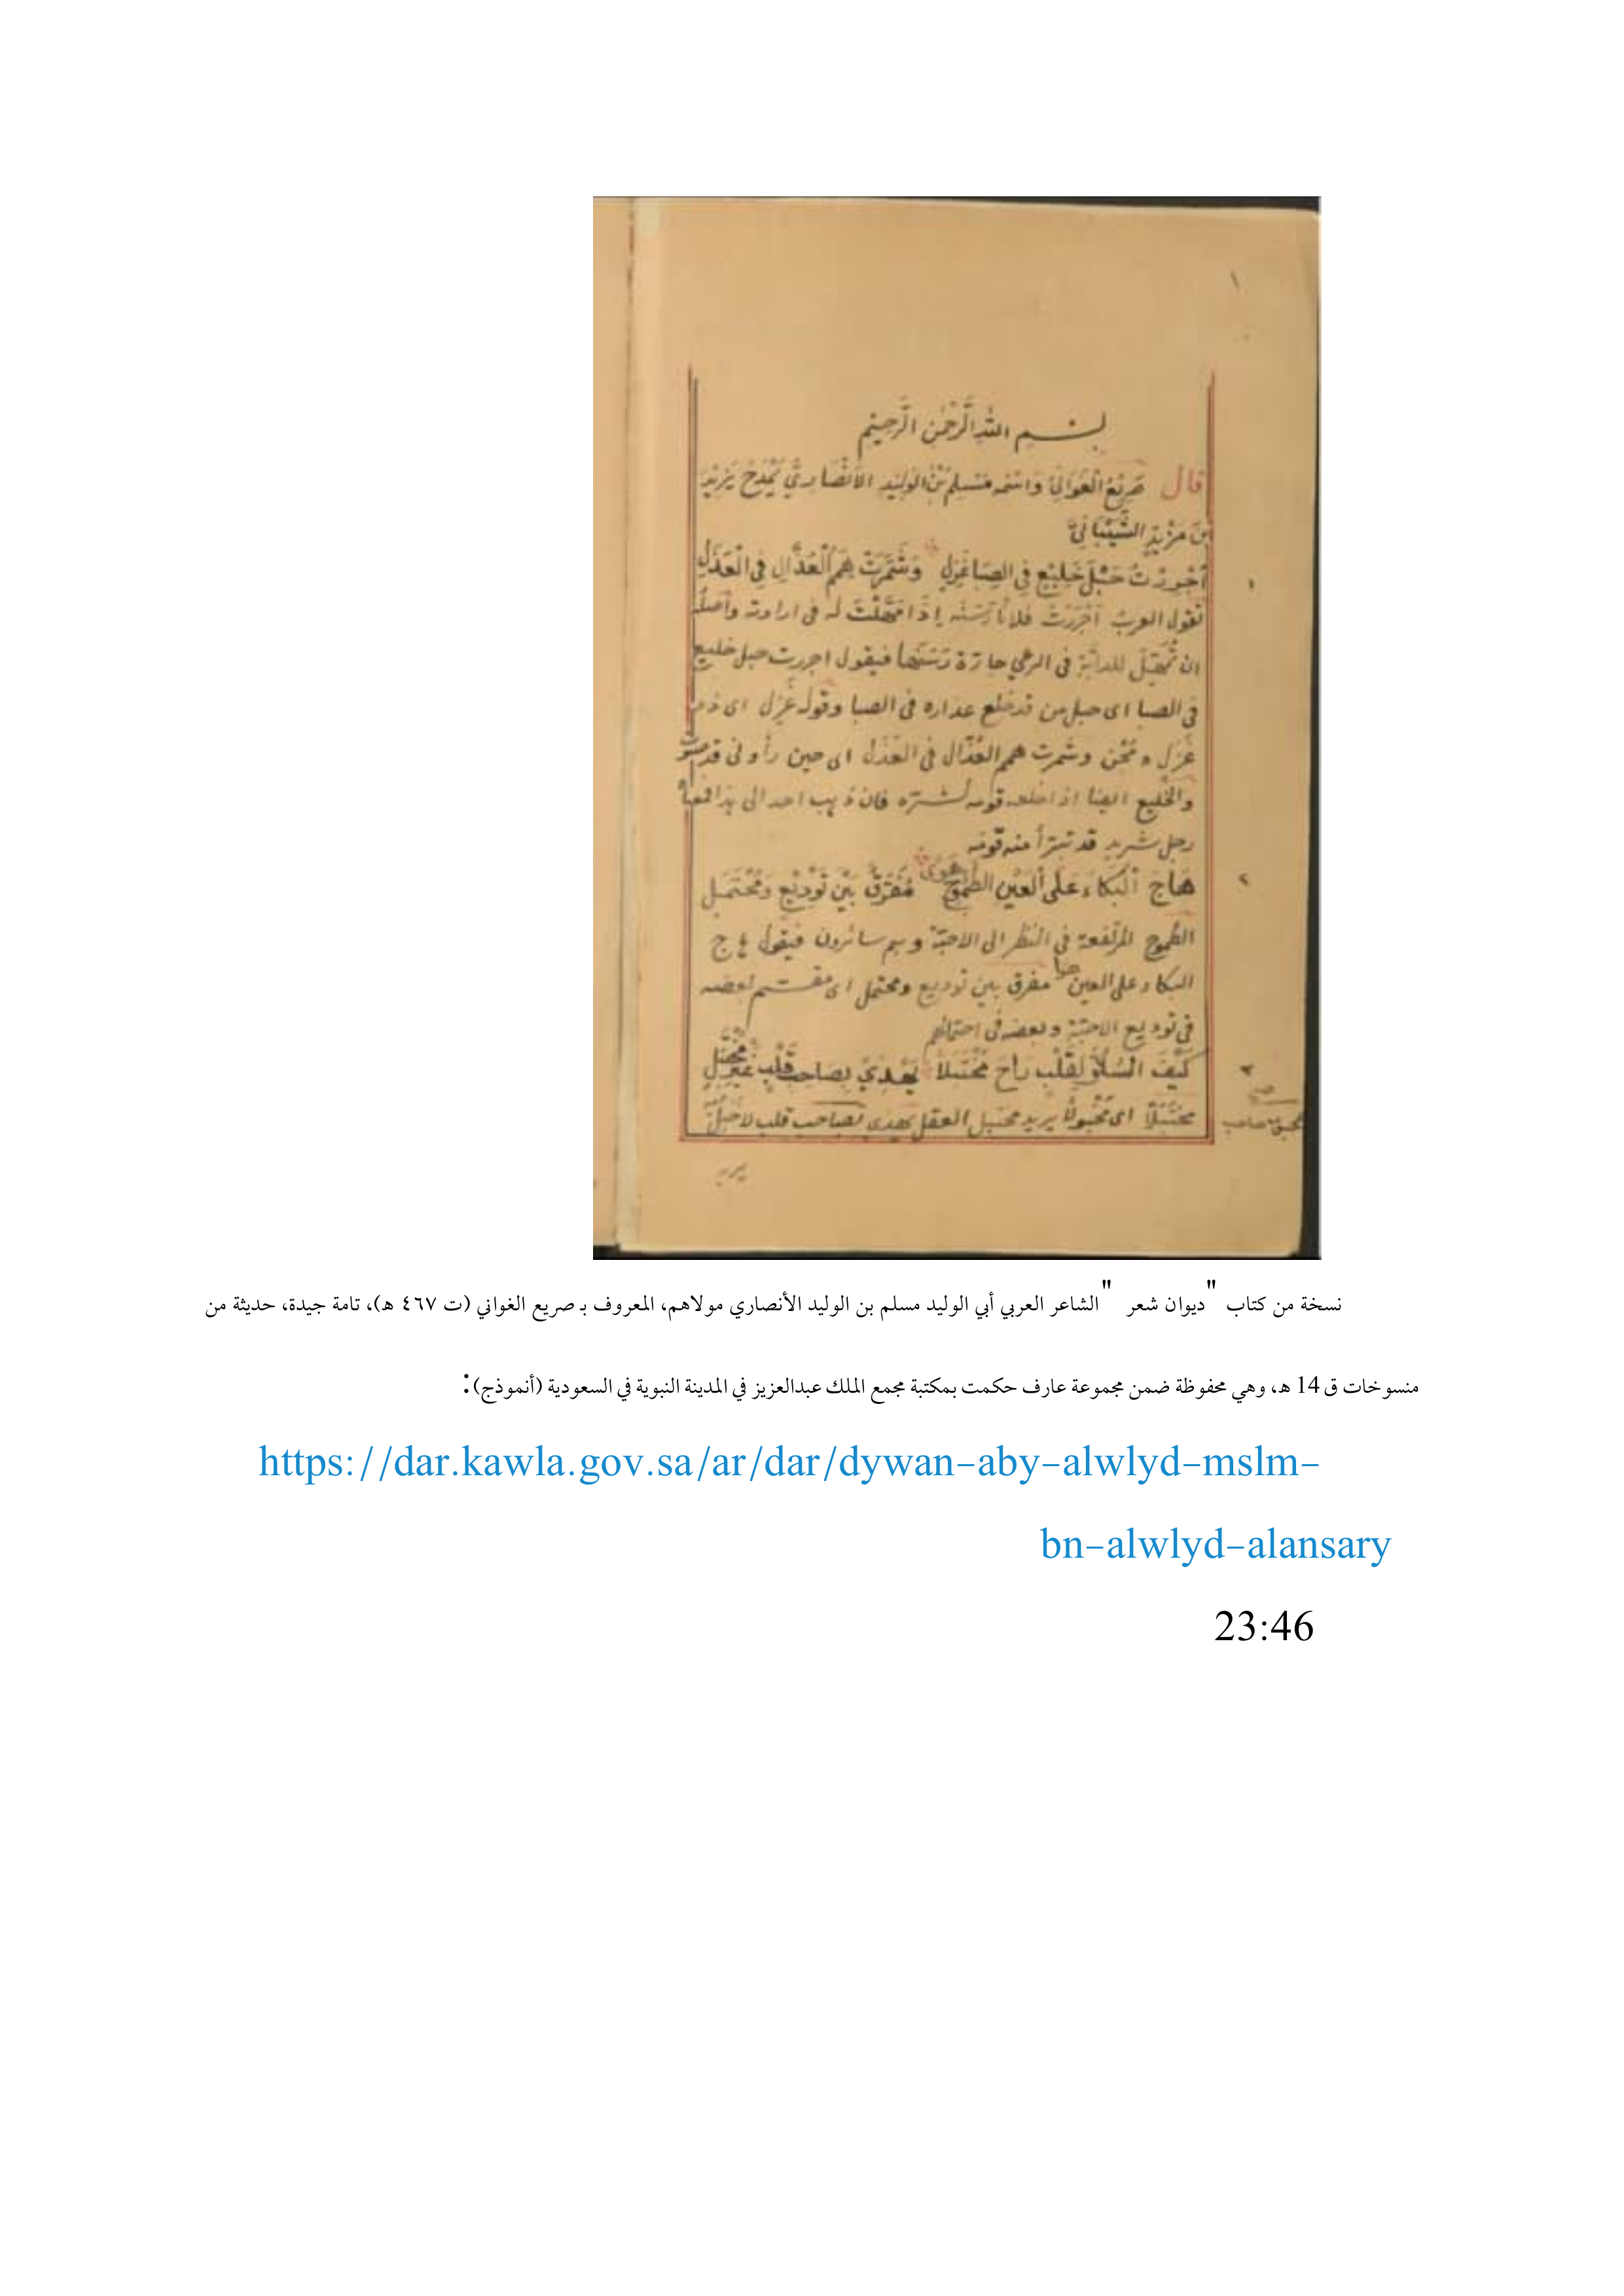 ١
بسم الله الرحمن الرحيم
قال صَرِيعُ الغَوَانِي وَاسْمُه مُسْلِم بْنُ الوَلِيد الأَنْصَارِيّ يَمْدَحُ يَزِيْدَ
بْنَ مَزْيَدٍ الشَّيْبَانِيَّ
أجْرِرْتُ حَبْلَ خَلِيْعٍ فِي الصِّبَا غَزِلِ وَشَمَّرَتْ هِمَمُ الْعُذَّالِ فِي الْعَذَلِ
١
تقول العرب أجْرَرْتُ فلانا رَسَنَه إذا أمْهَلْتَ له فى ارادته وأصله
ان تُمْهِلَ للدابّة فى الرعي جارّة رَسَنَها فيقول اجررت حبل خليع
فى الصبا اى حبل من قد خلع عذاره فى الصبا وقوله غَزِل اى ذو
غَزَل وشمرت همم العُذّال فى العَذَل اى حين رأونى قد
والخليع ايضا اذا خلعه قومه لشرّه فان ذهب احد الى هذا
رجل شريد قد تبرّأ منه قومه
هَاجَ الْبُكَاءَ عَلَى الْعَيْنِ الطَّمُوحِ هَوًى مُفَرَّقٌ بَيْنَ تَوْدِيْعٍ وَمُحْتَمَلِ
٢
الطموح المرتفعة فى النظر الى الاحبّة وهم سائرون فيقول هاج
البكاء على العين هوا مفرق بين توديع ومحتمل اى مقسم بعضه
فى توديع الاحبّة وبعضه فى احتمالهم
كَيْفَ السُّلُوُّ لِقَلْبٍ رَاحَ مُخْتَبَلاً يَهْذِيْ بِصَاحِبِ قَلْبٍ غَيْرِ مُخْتَبَلِ
٣
مختبلًا اى مخبولًا يريد مختبل العقل يهذى بصاحب قلب لا خبل
نسخة من كتاب "ديوان شعر "الشاعر العربي أبي الوليد مسلم بن الوليد الأنصاري مولاهم، المعروف بـ صريع الغواني (ت ٤٦٧ هـ)، تامة جيدة، حديثة من
منسوخات ق 14 هـ، وهي محفوظة ضمن مجموعة عارف حكمت بمكتبة مجمع الملك عبدالعزيز في المدينة النبوية في السعودية (أنموذج):
https://dar.kawla.gov.sa/ar/dar/dywan-aby-alwlyd-mslm-
bn-alwlyd-alansary
23:46